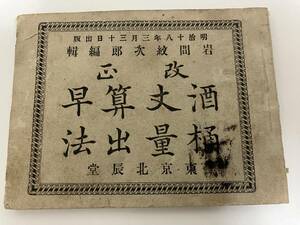 明治十八年三月三十日出版
岩間紋次郎編輯
改正
酒桶
丈量
算出
早法
東京北辰堂